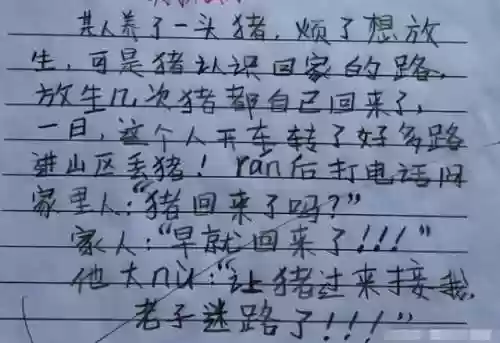 其人养了一头猪，烦了想放
生，可是猪认识回家的路，
放生几次猪都自己回来了，
一日，这个人开车转了好多路
进山区丢猪！rán后打电话问
家里人：“猪回来了吗？”
家人：“早就回来了！！！”
他大nù：“让猪过来接我，
老子迷路了！！！”